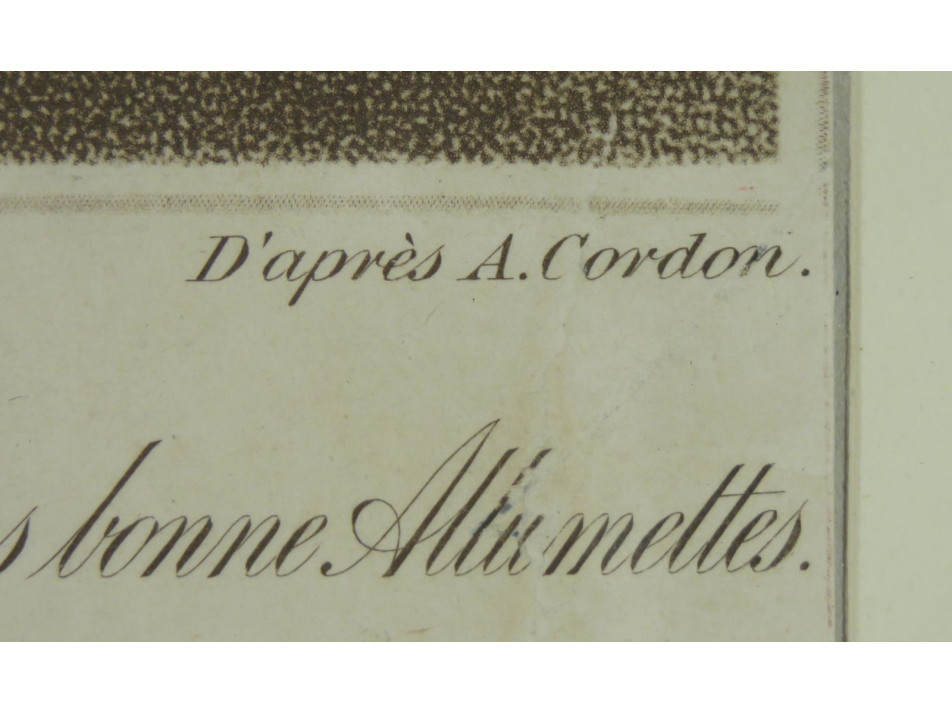 D'après A. Cordon.
s bonne Allumettes.